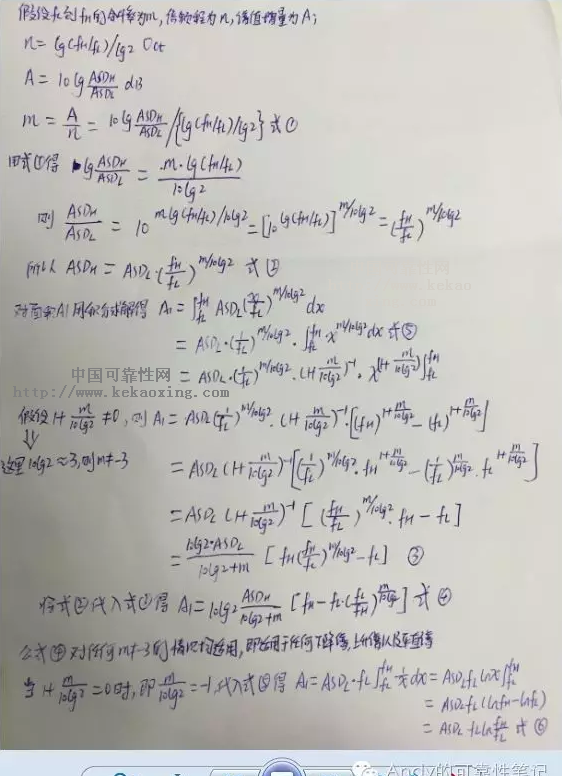 假设fL到fH的斜率为m, 倍频程为n, 谱值增量为A;
n = lg(fH/fL)/lg2 Oct
A = 10lg ASDH/ASDL dB
m = A/n = 10lg ASDH/ASDL / {lg(fH/fL)/lg2} 式①
由式①得 lg ASDH/ASDL = m·lg(fH/fL)/10lg2
则 ASDH/ASDL = 10^(m lg(fH/fL)/10lg2) = [10^lg(fH/fL)]^(m/10lg2) = (fH/fL)^(m/10lg2)
所以 ASDH = ASDL·(fH/fL)^(m/10lg2) 式②
对面积A1用积分求解得 A1 = ∫fL^fH ASDL(x/fL)^(m/10lg2) dx
= ASDL·(1/fL)^(m/10lg2)·∫fL^fH x^(m/10lg2) dx 式⑤
= ASDL·(1/fL)^(m/10lg2)·(1+m/10lg2)^-1·x^(1+m/10lg2)|fL^fH
中国可靠性网
http://www.kekaoxing.com
可靠性网
www.kekao
假设 1+m/10lg2 ≠0, 则 A1 = ASDL(1/fL)^(m/10lg2)·(1+m/10lg2)^-1·[(fH)^(1+m/10lg2) - (fL)^(1+m/10lg2)]
⇓
这里10lg2≈3, 则m≠-3
= ASDL(1+m/10lg2)^-1[(1/fL)^(m/10lg2)·fH^(1+m/10lg2) - (1/fL)^(m/10lg2)·fL^(1+m/10lg2)]
= ASDL(1+m/10lg2)^-1 [(fH/fL)^(m/10lg2)·fH - fL]
= 10lg2·ASDL/(10lg2+m) [fH(fH/fL)^(m/10lg2) - fL] ③
将式②代入式③得 A1 = 10lg2 ASDH/(10lg2+m) [fH - fL·(fL/fH)^(m/10lg2)] 式④
公式④对任何m≠-3的情况均适用, 即适用于任何下降谱, 上升谱以及平直谱
当 1+m/10lg2 =0时, 即 m/10lg2 = -1, 代入式⑤得 A1 = ASDL·fL∫fL^fH 1/x dx = ASDL fL lnx|fL^fH
= ASDL fL(lnfH-lnfL)
= ASDL fL ln fH/fL 式⑥
Andy的可靠性笔记